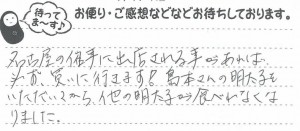 待ってま〜す♪
お便り・ご感想などなどお待ちしております。
名古屋の催事に出店される事があれば、
必ず、買いに行きます！島本さんの明太子を
いただいてから、他の明太子が食べれなくな
りました。